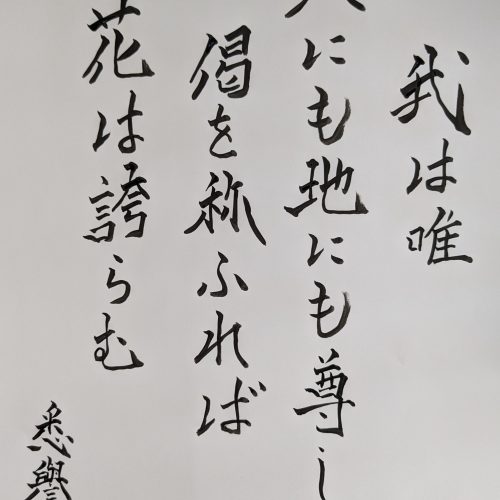 我は唯
天にも地にも尊し
偈を称ふれば
花は誇らむ
悉譽